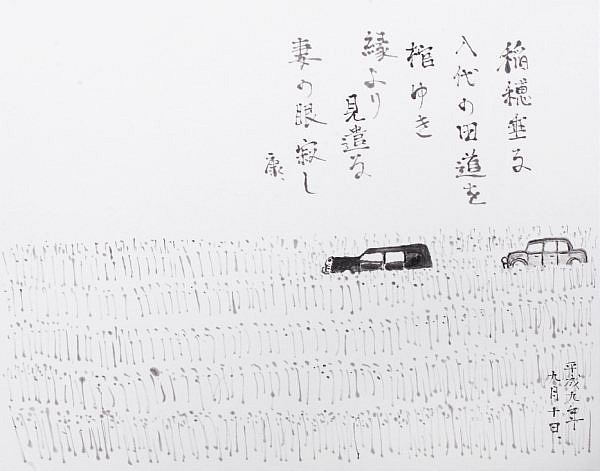 稲穂垂る
八代の田道を
棺ゆき
縁より
見遣る
妻の眼寂し
康
平成九年
九月十日